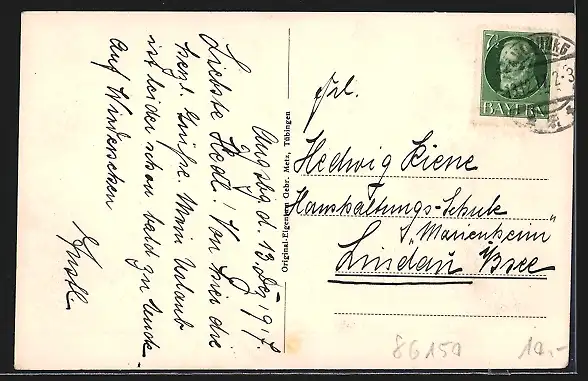 Augsbg d. 13. Dez. 917.
Liebste Hedl! Von hier die
herzl. Grüße. Mein Urlaub
ist leider schon bald zu Ende.
Auf Wiedersehen
Gustl
Original-Eigentum Gebr. Metz, Tübingen
7½
BAYERN
Frl.
Hedwig Kiene
Haushaltungs-Schule
"Marienheim"
Lindau i/Bsee
86150
10.-